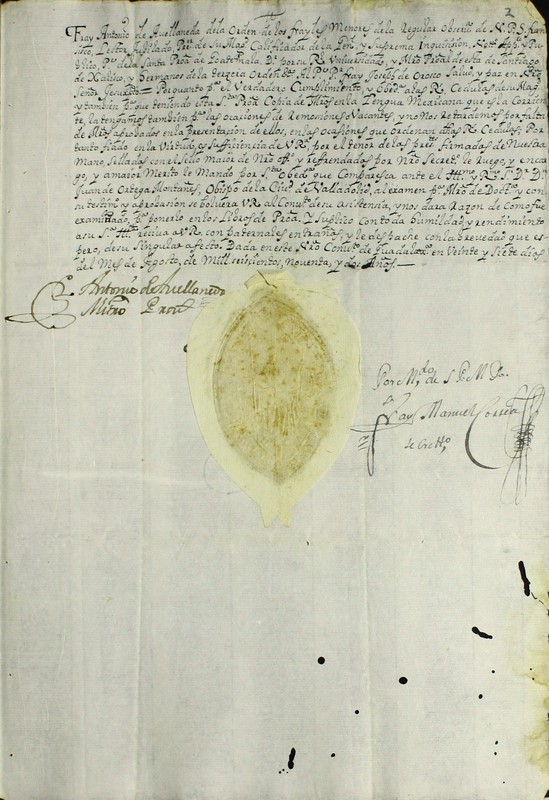 2
Fray Antonio de Avellaneda de la Orden de los frayles Menores de la Regular Observ.ª de N. P. S. Fran
cisco, Lector Jubilado, de su Mag.d Calificador de la Gen.l y Suprema Inquisicion, Nott.º App.co y Pu
blico, P.e de la Santa Prov.ª de Guatemala, D.r por su R.l Vniversidad, y Mro Proal de esta de Santiago
de Xalisco, y Hermanos de la Tercera Orden &.ª Al P.e Pr. Fray Joseph de Orosco Salud, y paz en Nro
Señor Jesuxpto = Por quanto p.ª el Verdadero Cumplimiento, y Obser.ª a las R.s Cedulas de su Mag.d
y tambien p.ª que teniendo esta S.ta Prov.ª Copia de Mros en la Lengua Mexicana que es la Corrien
te, la tengamos tambien p.ª las ocasiones de Remosiones y Vacantes, y no Nos retardemos por falta
de Mros aprobados en la presentacion de ellos, en las ocasiones que ordenan dhas R.s Cedulas; Por
tanto fiado en la Virtud, y sufficiencia de V.R. por el tenor de las pres.tes firmadas de Nuestra
Mano, Selladas con el sello maior de Nro off.º y refrendadas por Nro Secret.º le Ruego, y encar
go, y a maior Merito le Mando por s.ta Obed.ª que Comparesca ante el Ill.mo y R.mo S.r D.r D.n
Juan de Ortega Montañes, Obispo de la Ciud.d de Valladolid, al examen p.ª Mro de Doct.ª y con
su testim.º y aprobasion se bolvera V.R. al Conv.to de su asistensia, y nos dara Razon de Como fue
examinado, p.ª ponerlo en los Libros de Prov.ª Y Suplico Con toda humildad, y rendimiento
a su S.ª Ill.ma reciva a V.R. con paternales entrañas, y le despache con la brevedad que es-
pero, de su singular afecto. Dada en este Nro Conv.to de Guadalax.ª en Veinte y Siete dias
del Mes de Agosto, de Mill seisientos, Noventa, y dos Años. —
Fr. Antonio de Avellaneda
Mitro Proal
Por M.do de S. P. M. R.
Fray Manuel Correa
Secrett.º